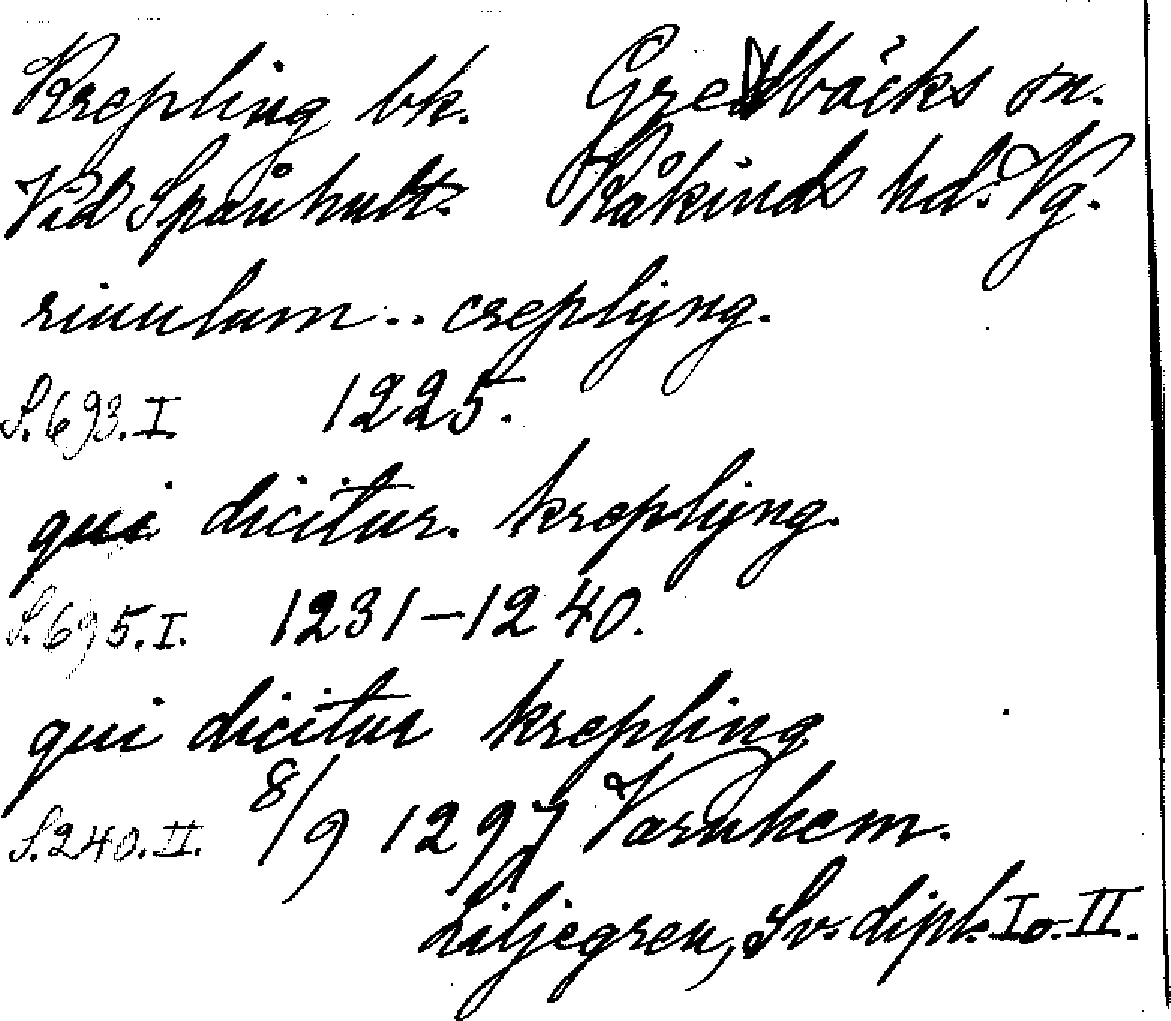 Krepling bk. Gredbäcks sn.
Vid Spånhult. Kåkinds hd. Vg.
riuulum .. creplijng.
S. 693. I. 1225.
qui dicitur. kreplijng.
S. 695. I. 1231-1240.
qui dicitur krepling
S. 240. II. 8/9 1297 Varnhem.
Liljegren, Sv. dipl. I o. II.